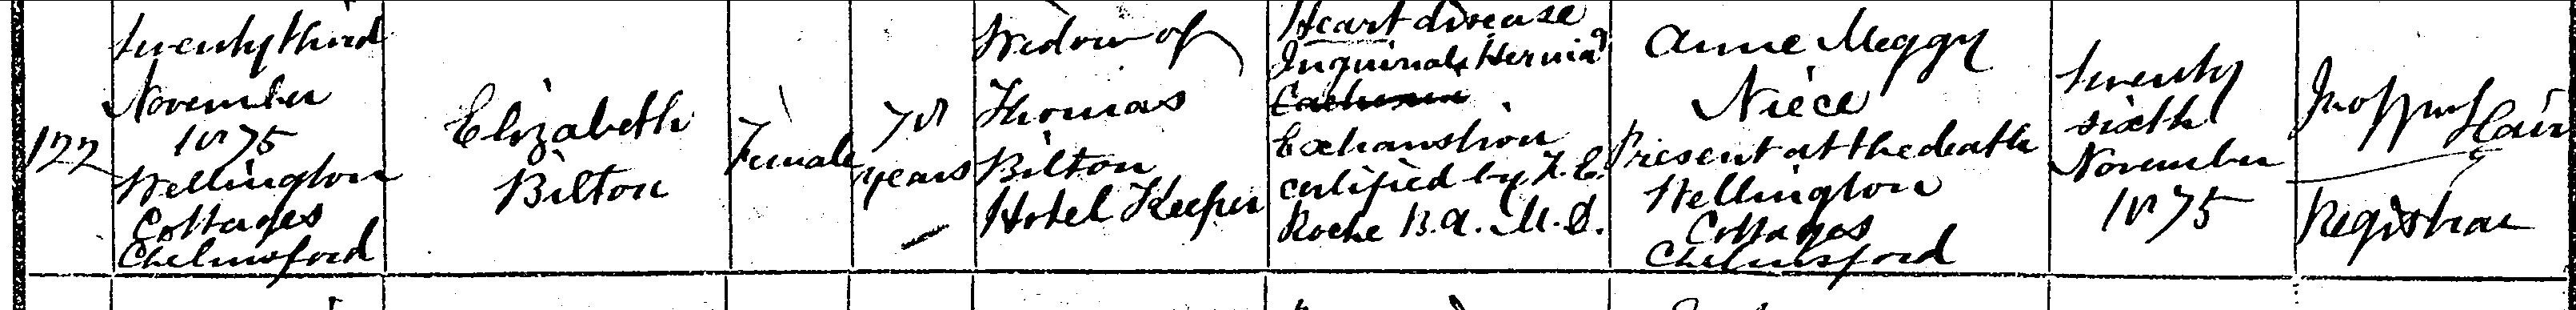 122
Twenty third
November
1875
Wellington
Cottages
Chelmsford
Elizabeth
Bilton
Female
78
years
Widow of
Thomas
Bilton
Hotel Keeper
Heart disease
Inguinal Hernia
Exhaustion
certified by
Roche B.A. M.D.
Anne Meggy
Niece
Present at the death
Wellington
Cottages
Chelmsford
Twenty
sixth
November
1875
Registrar